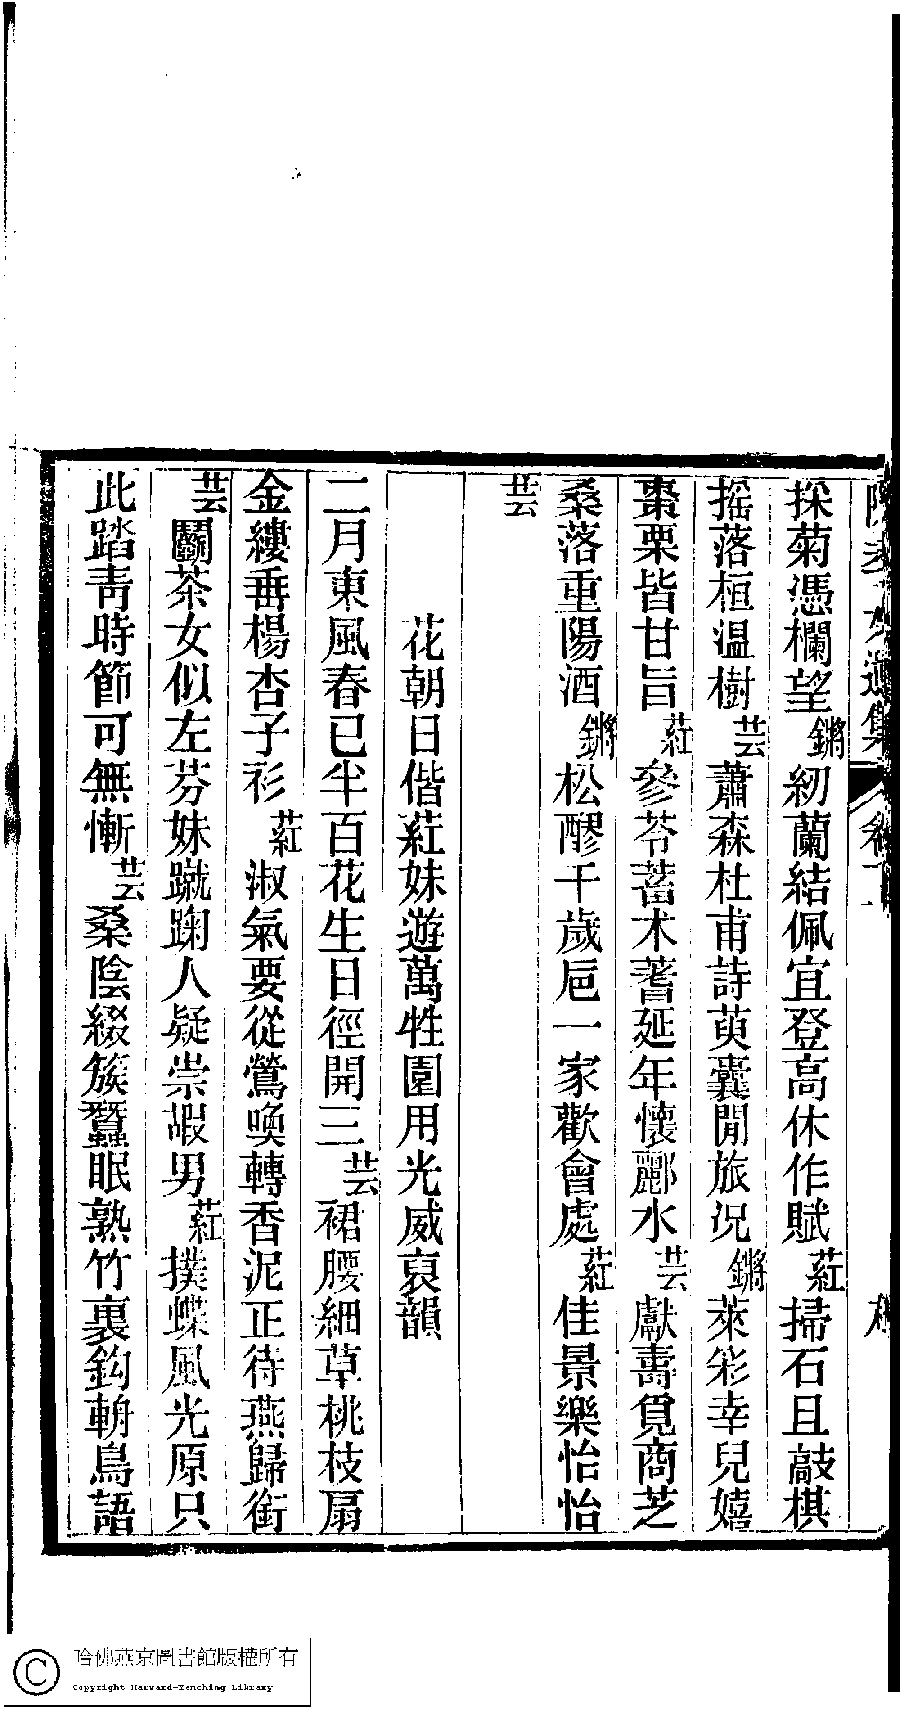 採菊憑欄望鏘紉蘭結佩宜登高休作賦葒掃石且敲棋
搖落桓溫樹芸蕭森杜甫詩萸囊閒旅況鏘萊彩幸兒嬉
棗栗皆甘旨葒參苓蓄朮蓍延年懷酈水芸獻壽覓商芝
桑落重陽酒鏘松醪千歲巵一家歡會處葒佳景樂怡怡
芸
花朝日偕葒妹遊萬牲園用光威裒韻
二月東風春已半百花生日徑開三芸裙腰細草桃枝扇
金縷垂楊杏子衫葒淑氣要從鶯喚轉香泥正待燕歸銜
芸鬭茶女似左芬妹蹴踘人疑崇嘏男葒撲蝶風光原只
此踏青時節可無慚芸桑陰綴簇蠶眠熟竹裏鈎輈鳥語
哈佛燕京圖書館版權所有
Copyright Harvard-Yenching Library